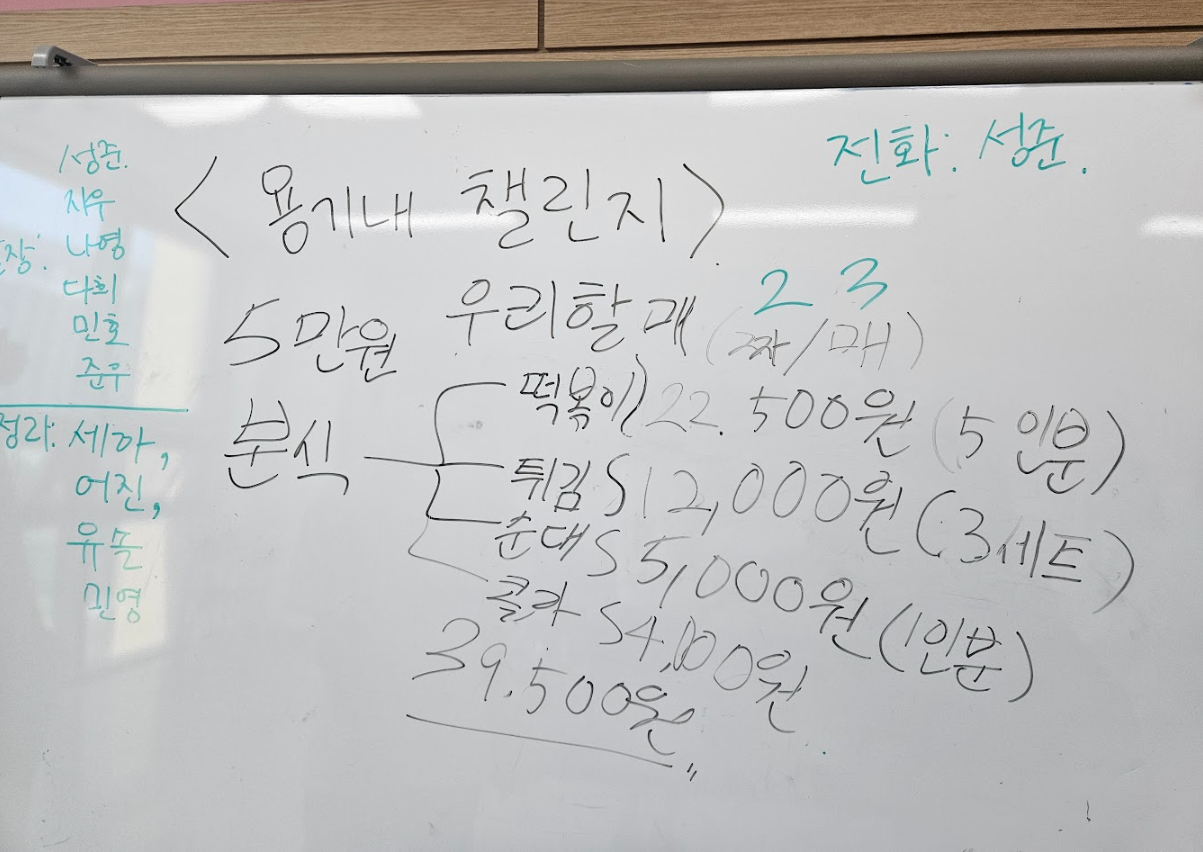 전화: 성준.
<용기내 챌린지>
성준.
지우
나영
다희
민호
준우
세아,
어진,
유슬
민영
2 3
5만원 우리할매 (짜/매)
분식
떡볶이) 22.500원 (5인분)
튀김 S 12,000원 (3세트)
순대 S 5,000원 (1인분)
콜라 S 4,000원
39.500원